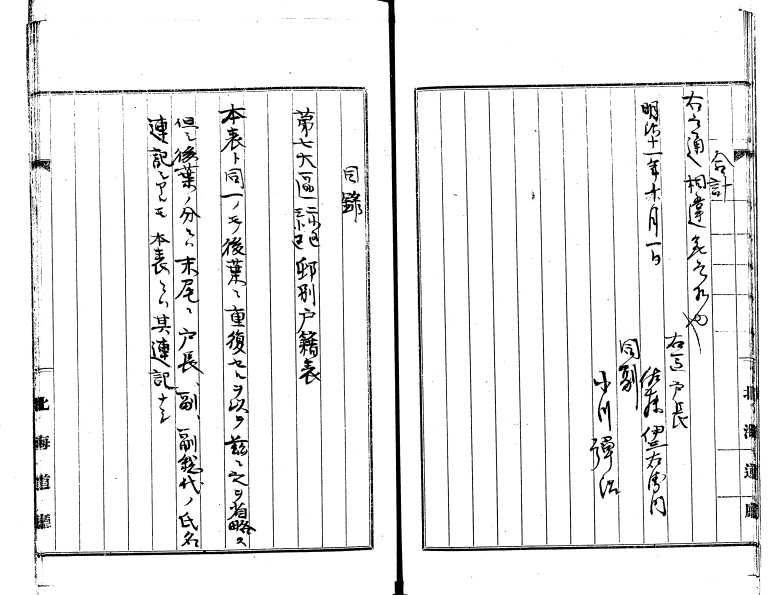 合計
右之通相違無之候也
明治十一年十月一日
右区戸長
佐藤伊三右衛門
同副
小川弾治
北海道廳
目錄
第七大區二小区三小区邸別戸籍表
本表ト同一ノモノ後葉ニ重復セルヲ以テ茲ニ之ヲ省略ス
但シ後葉ノ分ニハ末尾ニ戸長、副、副総代ノ氏名
連記シアルモ本表ニハ其連記ナシ
北海道廳